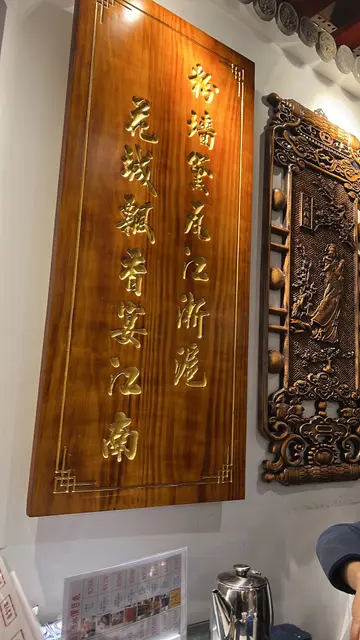 粉墙黛瓦江浙沪
花城飘香宴江南